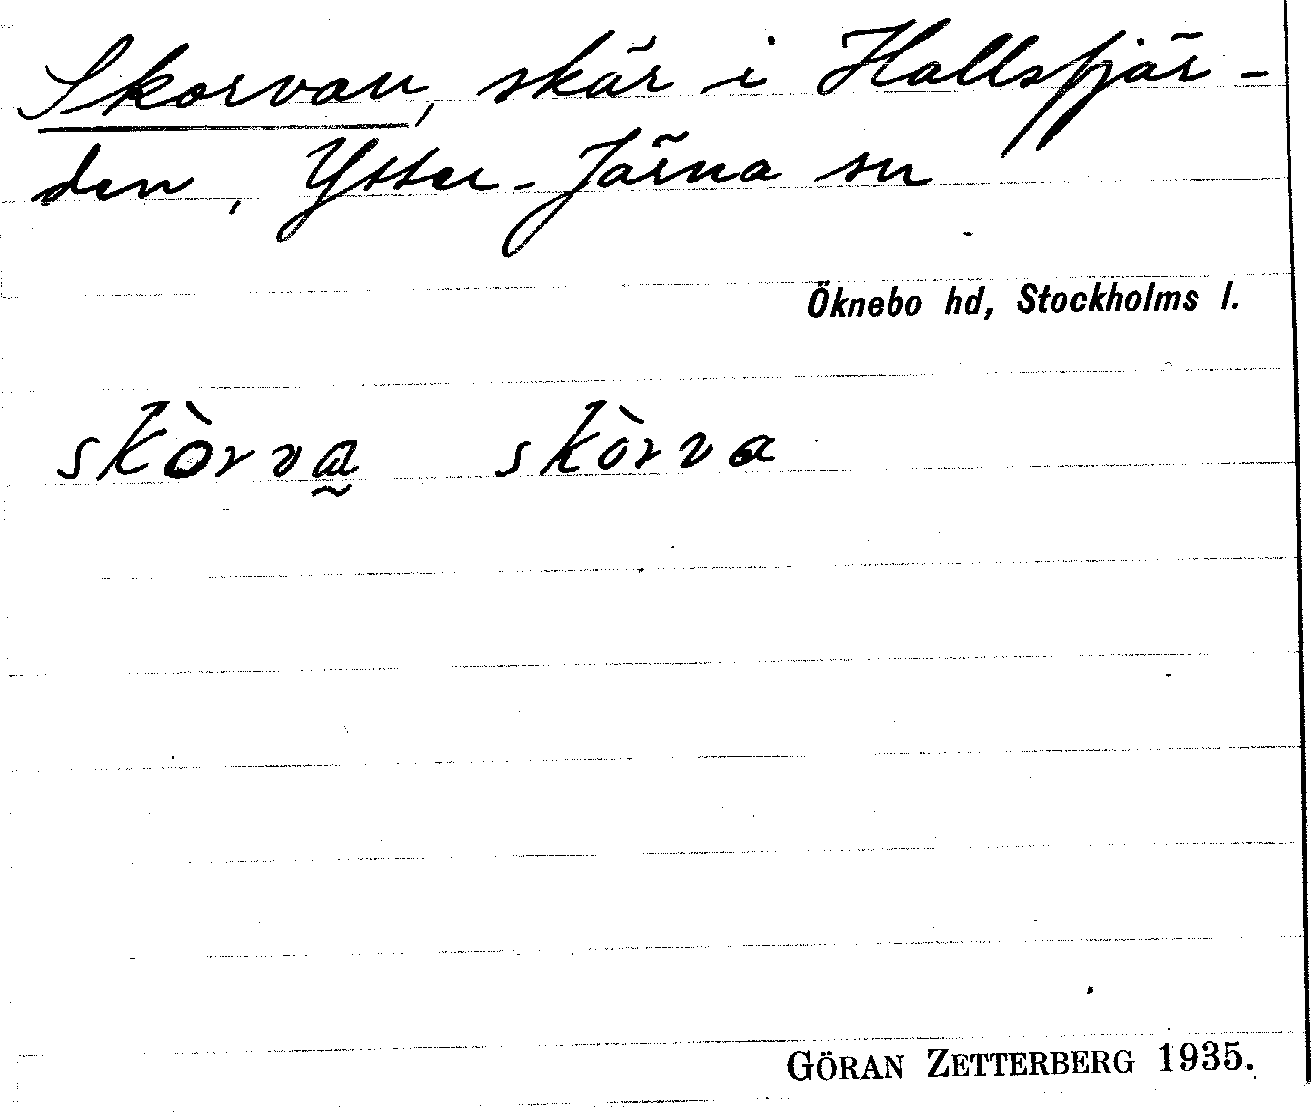 Skorvan, skär i Hallsfjär-
den, Ytter-Järna sn
Öknebo hd, Stockholms l.
skòrva̰ skòrva
GÖRAN ZETTERBERG 1935.